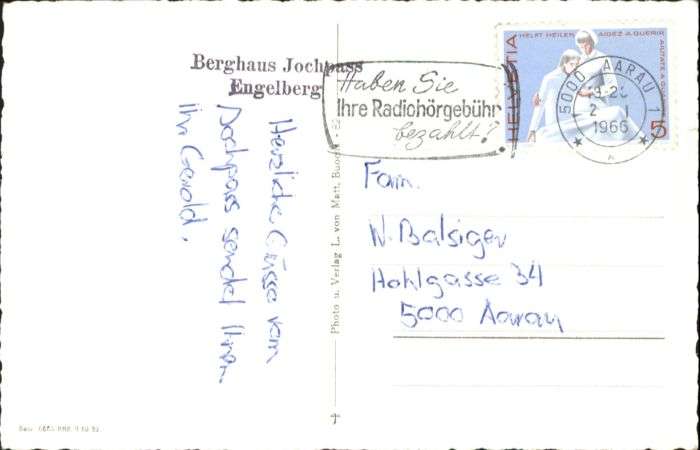 Berghaus Jochpass
Engelberg
Herzliche Grüsse vom
Jochpass sendet Ihnen
Ihr Gerold.
Photo u. Verlag L. von Matt, Buochs
Haben Sie
Ihre Radiohörgebühr
bezahlt?
HELFT HEILEN AIDEZ A GUERIR AIUTATE A
HELVETIA
5
5000 AARAU 1
1966
Fam.
W. Balsiger
Hohlgasse 34
5000 Aarau